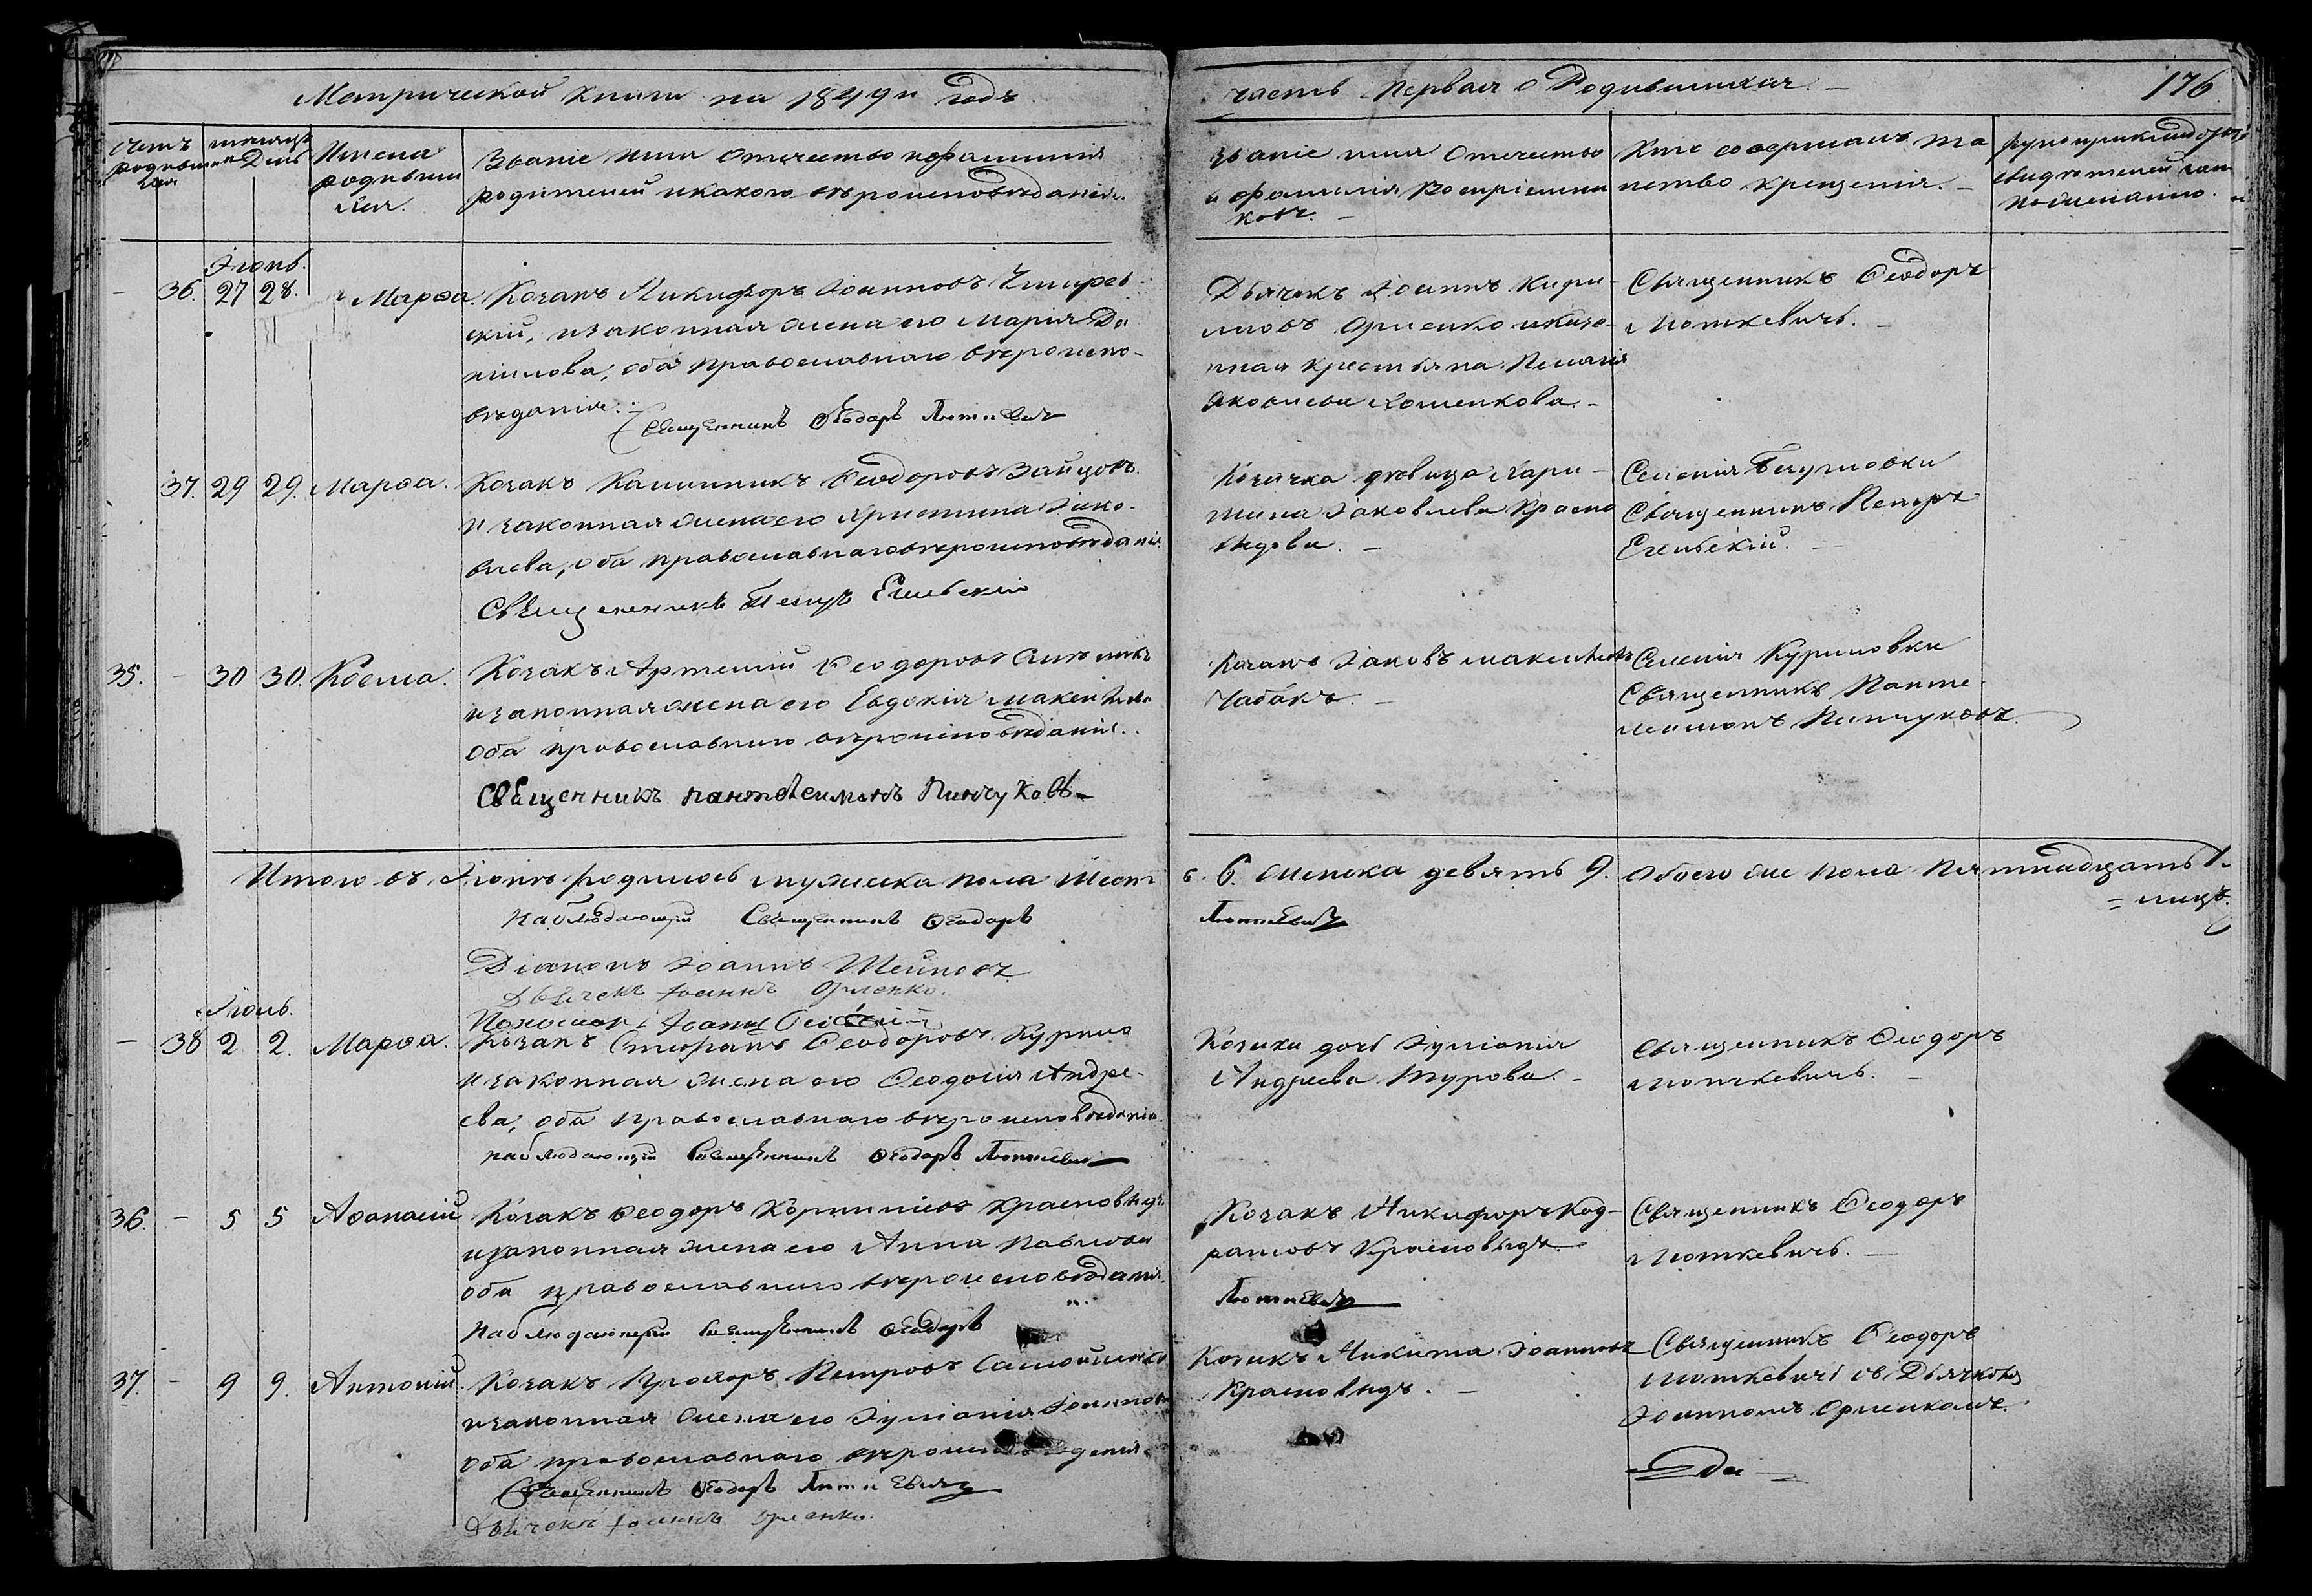 Метрической Книги на 1849й годъ
часть Первая о Родившихся.
176
счетъ родившихся
мѣсяцъ и День
Имена родившихся.
Званіе имя Отчество и фамилія
родителей и какого вѣроисповѣданія.
Званіе имя Отчество
и фамилія Воспріемни
ковъ.
Кто совершалъ та
инство крещенія.
Рукоприкладство
свидѣтелей
по желанію.
Іюнь.
36. 27 28. Марѳа. Козакъ Никифоръ Іоанновъ
и законная жена его Марія Да
ніилова, оба Православнаго вѣроиспо-
вѣданія.
Священникъ Ѳеодоръ
Дьячекъ Іоаннъ Кири-
ловъ Орленко и
крестьяна Пелагія
Яковлева
Священникъ Ѳеодоръ
37. 29 29. Марѳа. Козакъ Калинникъ Ѳеодоровъ Зайцовъ
и законная жена его Христина Іако-
влева, оба православнаго вѣроисповѣданія
Священникъ Петръ
Козачка дѣвица Хари-
тина Іаковлева Красно
видова.
Селенія
Священникъ Петръ
35. - 30 30. Косма. Козакъ Артемій Ѳеодоровъ
и законная жена его Евдокія
оба православнаго вѣроисповѣданія.
Священникъ Пантелеимонъ Пинчуковъ
Козакъ Іаковъ
Чабакъ.
Селенія Куриловки
Священникъ Панте-
леимонъ Пинчуковъ.
Итого въ Іюнѣ родилось мужеска пола Шесть
6. Женска девять 9. Обоего же пола Пятнадцать
лицъ.
Наблюдающій Священникъ Ѳеодоръ
Діаконъ Іоаннъ Шейновъ
Дьячекъ Іоаннъ Орленко.
Пономарь Іоаннъ
Іюль.
38 2 2. Марѳа. Козакъ Стефанъ Ѳеодоровъ Курило
и законная жена его Ѳеодосія Андре-
ева, оба православнаго вѣроисповѣданія
Наблюдающій Священникъ Ѳеодоръ
Козака дочь Іуліанія
Андреева Турова.
Священникъ Ѳеодоръ
36. - 5 5 Аѳанасій Козакъ Ѳеодоръ Корниліевъ Красновидъ
и законная жена его Анна Павлова
оба православнаго вѣроисповѣданія.
Наблюдающій Священникъ Ѳеодоръ
Козакъ Никифоръ Код-
ратовъ Красновидъ.
Священникъ Ѳеодоръ
37. - 9 9. Антоній. Козакъ Прохоръ Петровъ Самойленко
и законная жена его Іуліанія Іоаннова
оба православнаго вѣроисповѣданія.
Священникъ Ѳеодоръ
Дьячекъ Іоаннъ Орленко.
Козакъ Никита Іоанновъ
Красновидъ.
Священникъ Ѳеодоръ
съ Дьячкомъ
Іоанномъ Орленкомъ.